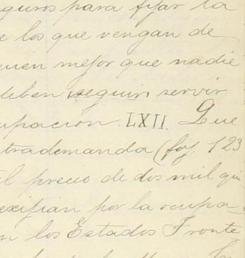 guros para fijar la
e los que vengan de
uen mejor que nadie
deben seguir servir
upacion. LXII. Que
trademanda (foj. 123
l precio de dos mil qui
exijian por la ocupa
n los Estados Fronte